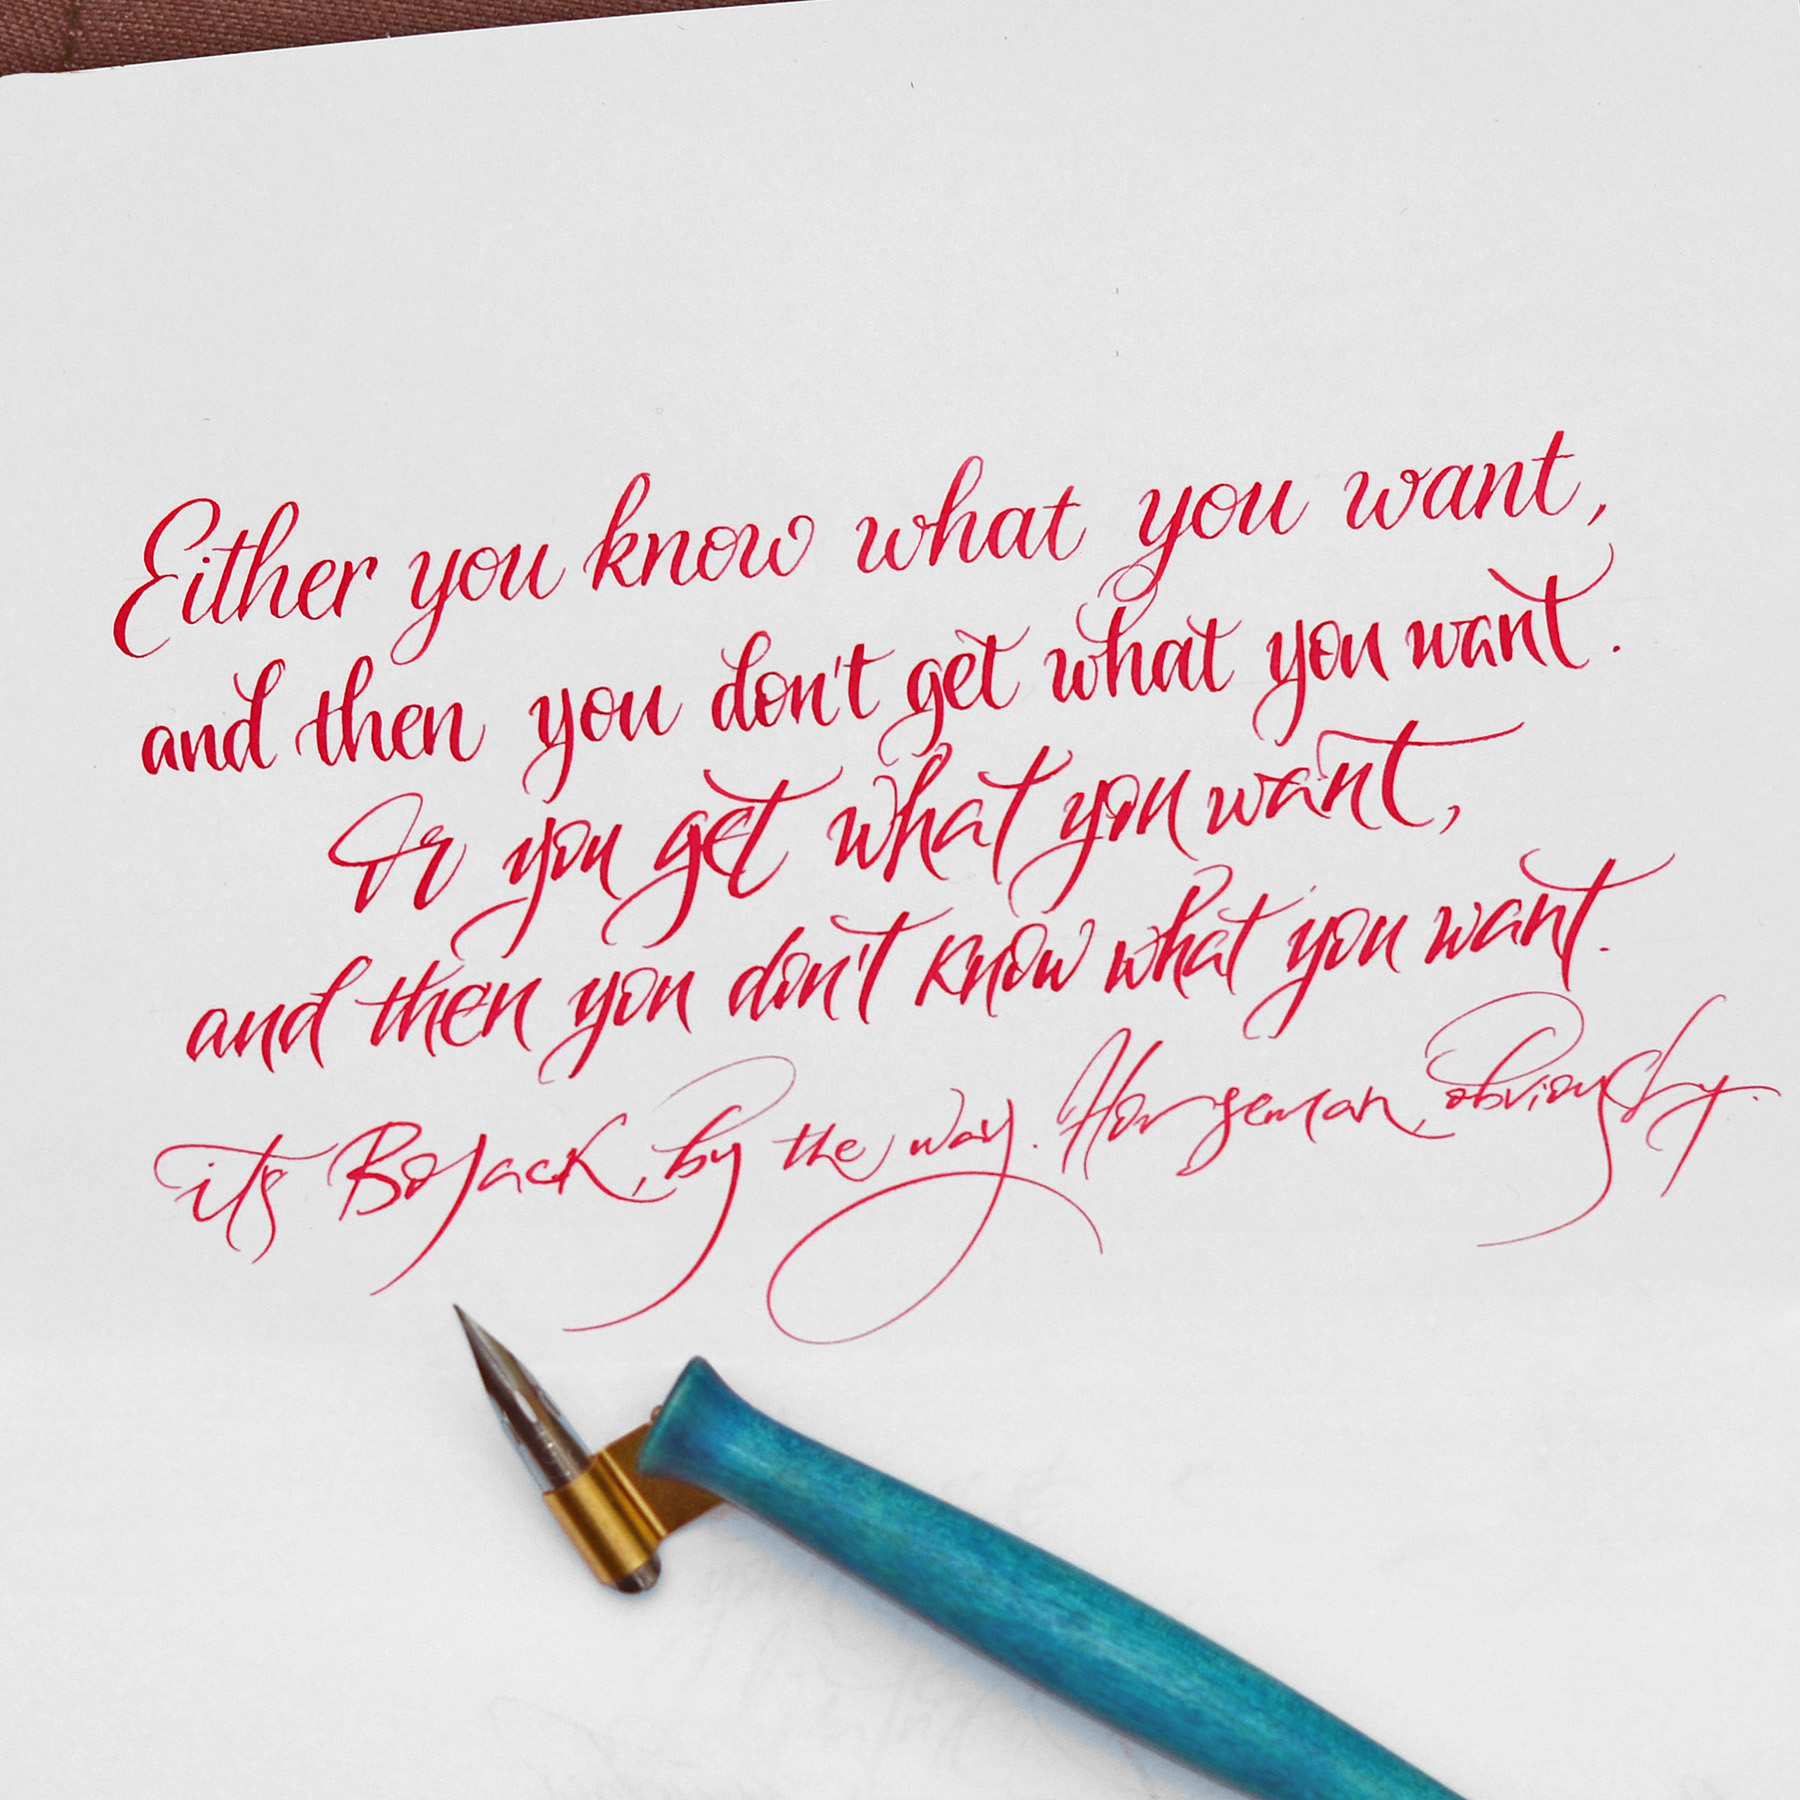 Either you know what you want,
and then you don't get what you want.
Or you get what you want,
and then you don't know what you want.
its BoJack, by the way. Horseman, obviously.